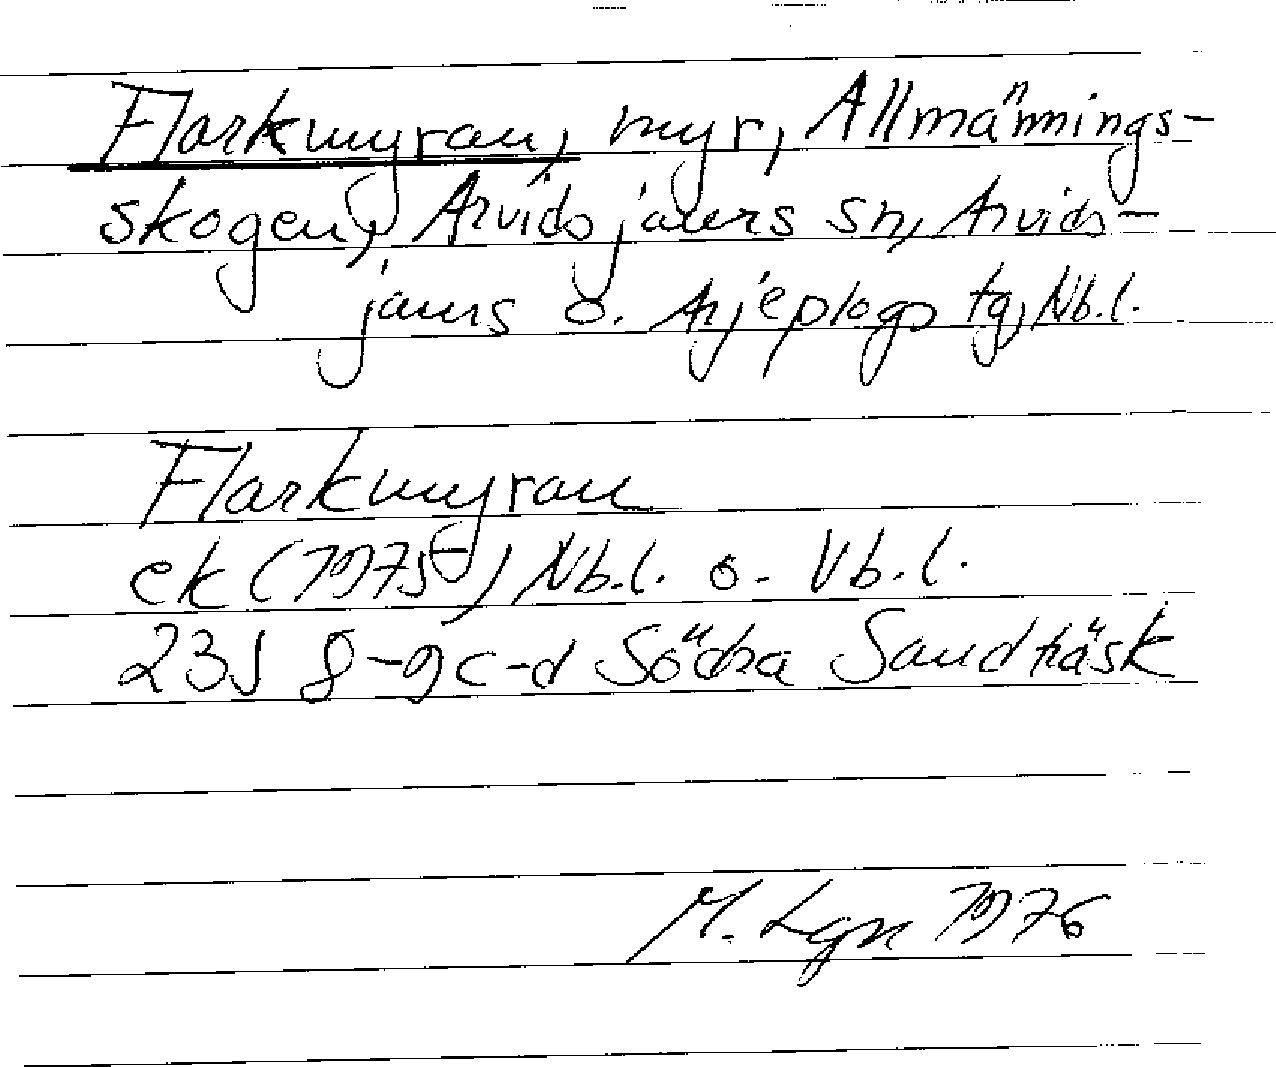 Flarkmyran, myr, Allmännings-
skogen, Arvidsjaurs sn, Arvids-
jaurs o. Arjeplogs tg, Nb.l.
Flarkmyran
ek (1975) Nb.l. o. Vb.l.
23J 8-9 c-d Södra Sandträsk
M. Lgn 1976